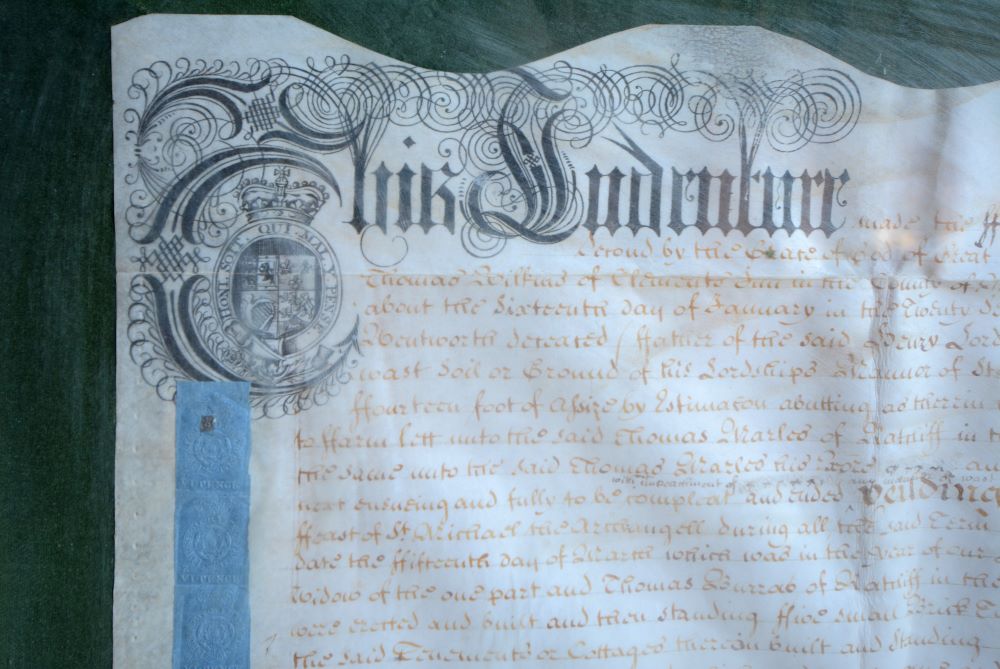 This Indenture made the
Second by the Grace of God of Great
Thomas Wilkins of Clements Inn in the County of
about the Sixteenth day of January in the Twenty
Wentworth deceased ffather of the said Henry Lord
wast Soil or Ground of his Lordships Mannor of St
ffourteen foot of Assize by Estimacon abutting as therein
to ffarm lett unto the said Thomas Marles of Ratcliff in t
the same unto the said Thomas Marles his
with impeachment of wast
next ensueing and fully to be compleat and ended Yeilding
ffeast of St. Michael the Archangell during all the said Term
date the ffifteenth day of March which was in the year of our
Widow of the one part and Thomas Burras of Ratcliff in the
were erected and built and then standing ffive small Brick T
the said Tenements or Cottages thereon built and standing
HONI SOIT QUI MAL Y PENSE
VI PENCE
VI PENCE